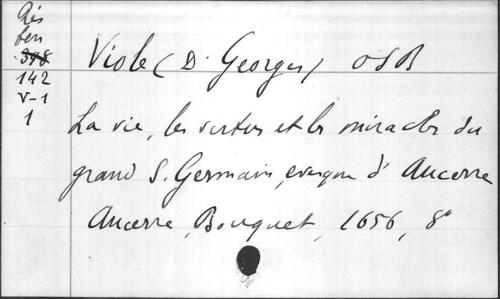 Rés
ben
398
142
V-1
1
Viole (D. Georges) OSB
La vie, les vertus et les miracles du
grand S. Germain, evesque d' Aucerre
Aucerre, Bouquet, 1656, 8°